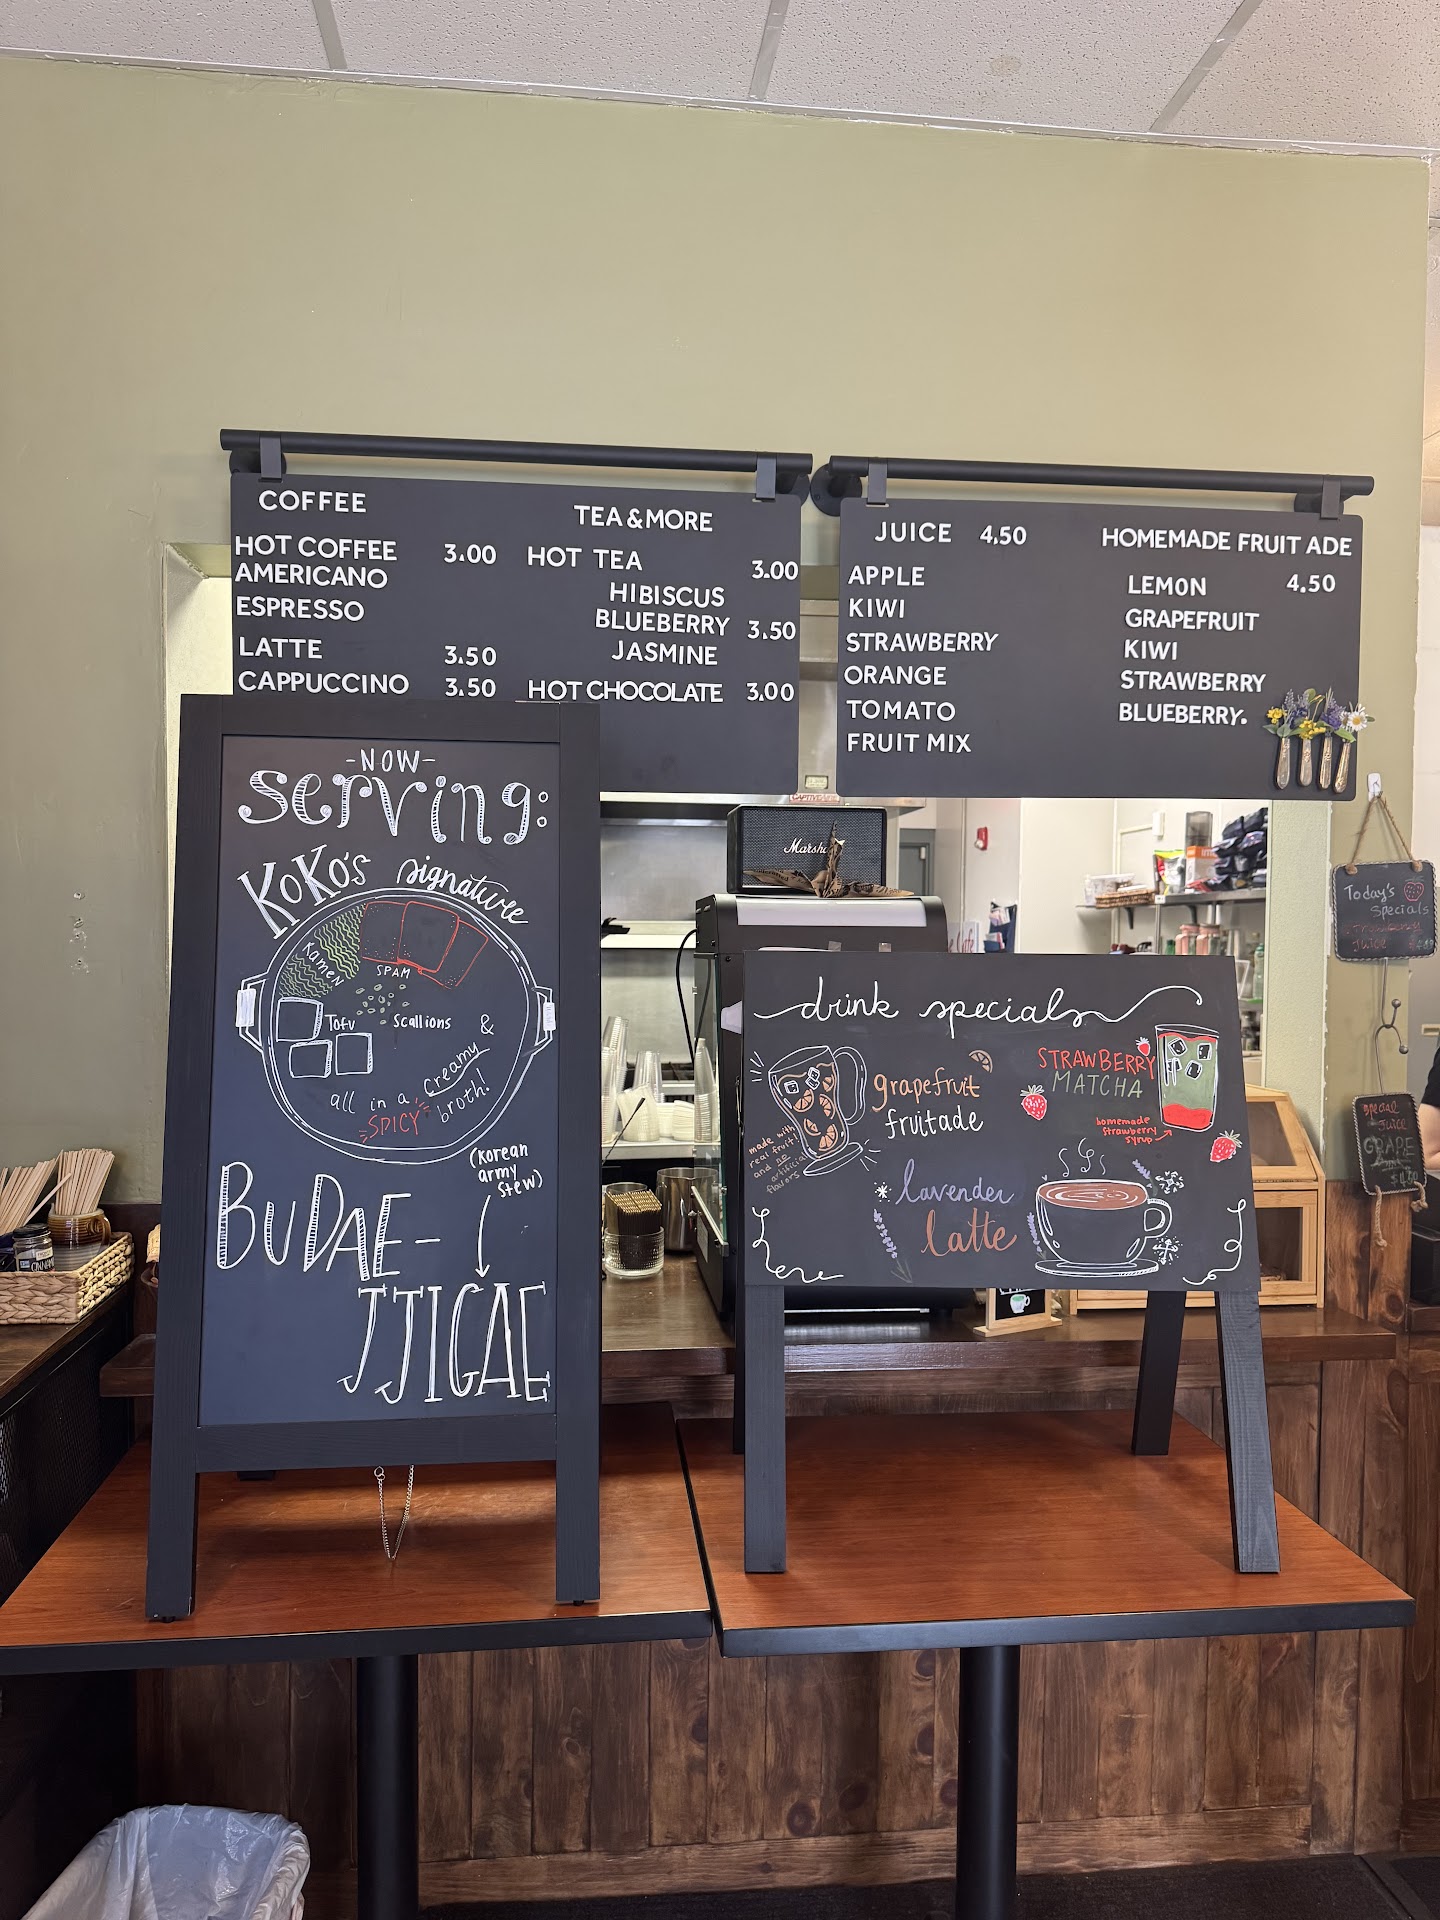 COFFEE
HOT COFFEE 3.00
AMERICANO
ESPRESSO
LATTE 3.50
CAPPUCCINO 3.50
TEA & MORE
HOT TEA 3.00
HIBISCUS
BLUEBERRY 3.50
JASMINE
HOT CHOCOLATE 3.00
JUICE 4.50
APPLE
KIWI
STRAWBERRY
ORANGE
TOMATO
FRUIT MIX
HOMEMADE FRUIT ADE
LEMON 4.50
GRAPEFRUIT
KIWI
STRAWBERRY
BLUEBERRY.
-NOW-
serving:
KOKO'S signature
Ramen
SPAM
Tofu
Scallions
all in a creamy &
SPICY broth!
(Korean
army
stew)
BUDAE-
JJIGAE
Marshall
drink specials
grapefruit
fruitade
made with
real fruit!
and no
artificial
flavors
STRAWBERRY
MATCHA
homemade
strawberry
syrup
lavender
latte
Today's
Specials
Strawberry
Juice
Special
Juice
GRAPE